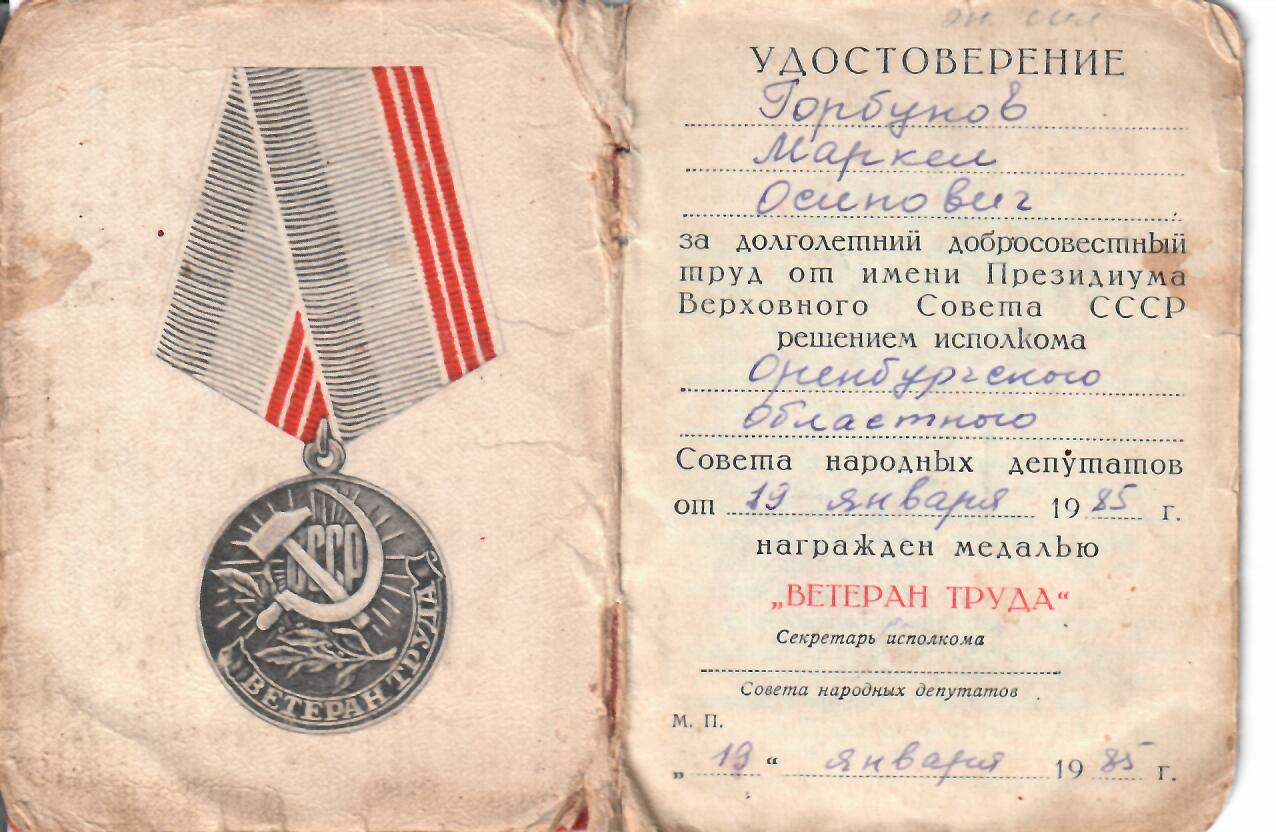 СССР
ВЕТЕРАН ТРУДА
УДОСТОВЕРЕНИЕ
Горбунов
Маркел
Осипович
за долголетний добросовестный
труд от имени Президиума
Верховного Совета СССР
решением исполкома
Оренбургского
областного
Совета народных депутатов
от 19 января 1985 г.
награжден медалью
„ВЕТЕРАН ТРУДА“
Секретарь исполкома
Совета народных депутатов
М. П.
„ 19 “ января 1985 г.